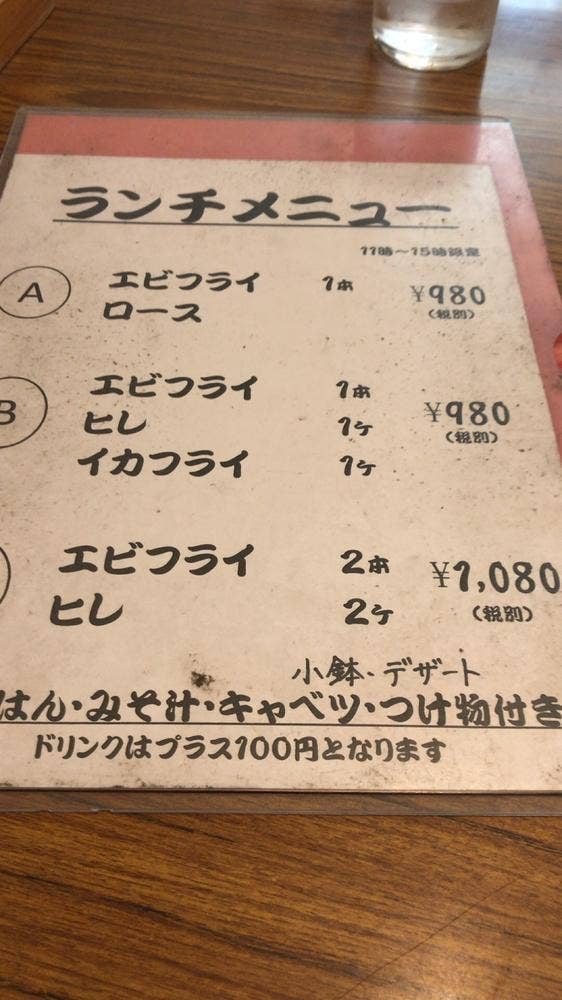 ランチメニュー
11時〜15時限定
A エビフライ 1本 ¥980
ロース (税別)
B エビフライ 1本 ¥980
ヒレ 1ケ (税別)
イカフライ 1ケ
エビフライ 2本 ¥1,080
ヒレ 2ケ (税別)
小鉢・デザート
はん・みそ汁・キャベツ・つけ物付き
ドリンクはプラス100円となります